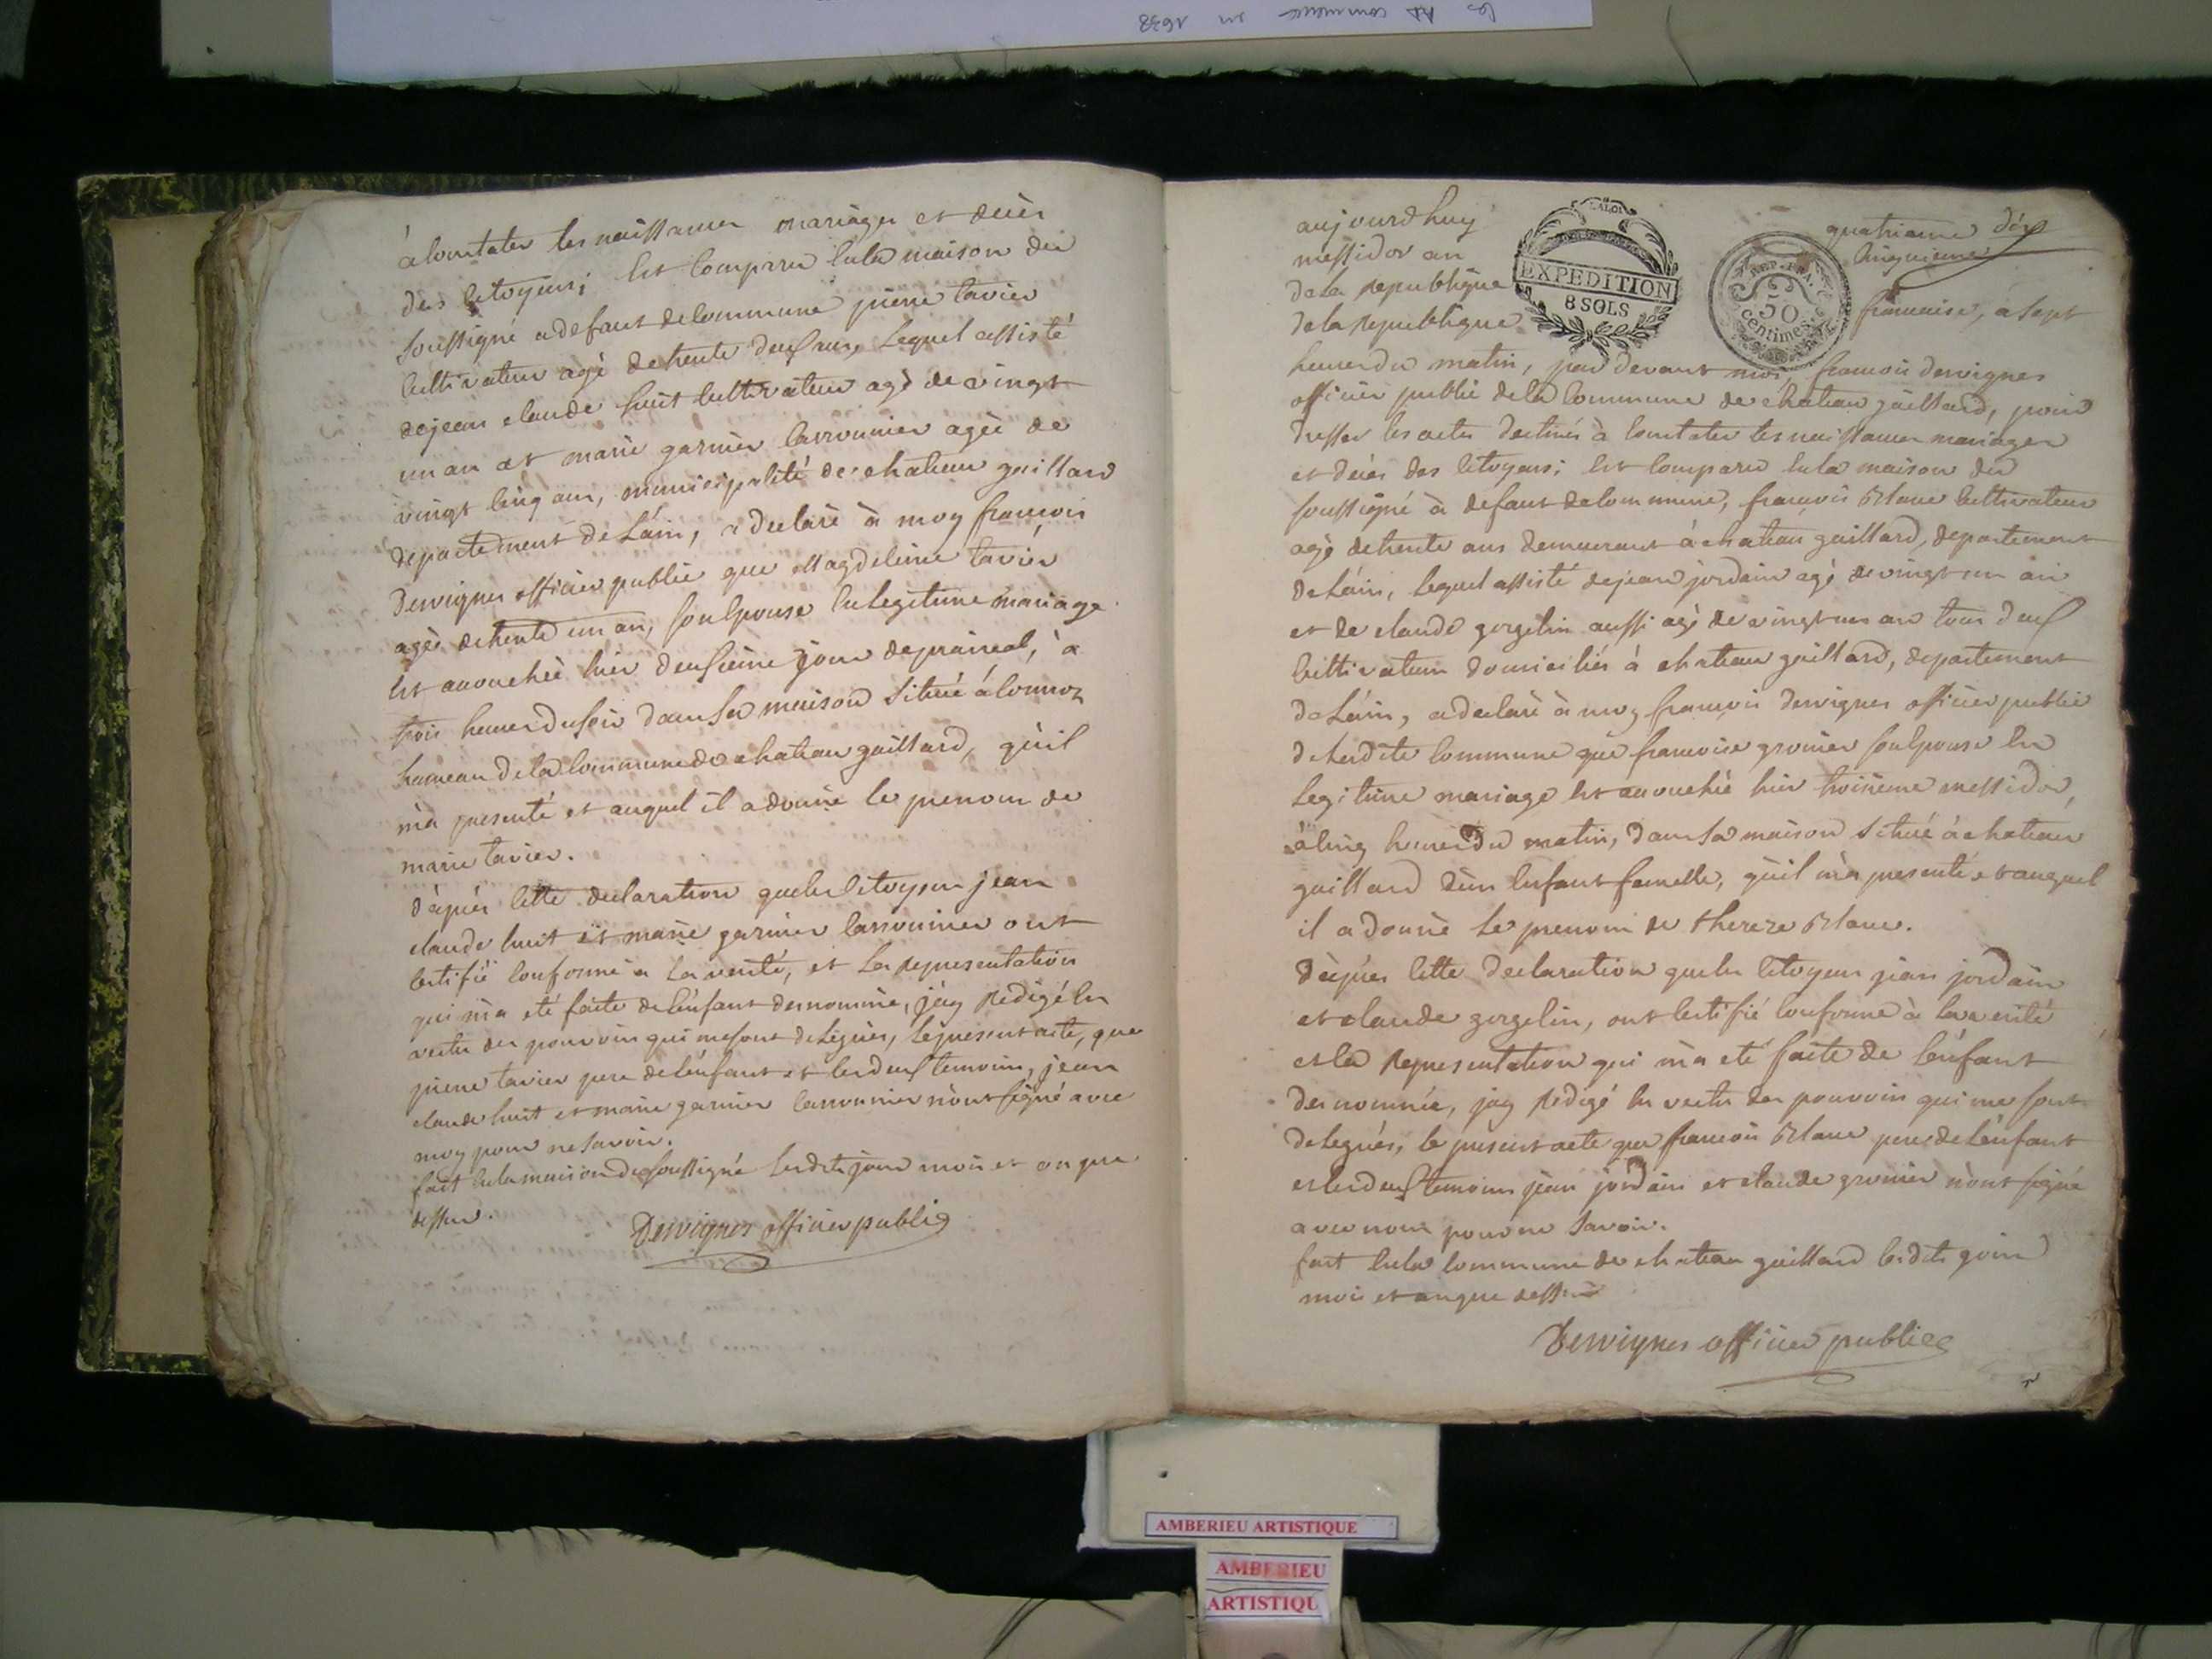 les commence en 1698
à Constater les naissances mariages et decès
des Citoyens; Est Comparu En la maison du
soussigné a defaut de Commune piere tavier
Cultivateur agé de trente deux ans, Lequel assisté
de jean claude huit Cultivateur agé de vingt
un an et marie garnier Cassonnier agée de
vingt Cinq ans, municipalité de chateau gaillard
departement de L'ain, a declaré à moy francois
Dervignes officier public que Magdeleine tavier
agée de trente un an, son Epouse En legitime mariage
Est accouchée hier deuxieme jour de prairéal, à
trois heures du soir dans sa maison située à Cormoz
hameau de la Commune de chateau gaillard, qu'il
m'a presenté et auquel il a donné le prenom de
marie tavier.
d'après Cette declaration que les Citoyens jean
claude huit et marie garnier Cassonnier ont
Certifié Conforme a la verité, et La representation
qui m'a eté faite de L'enfant denommé, j'ay redigé En
vertu des pouvoirs qui me sont delegués, le present acte, que
piere tavier pere de L'enfant et les deux temoins, jean
claude huit et marie garnier Cassonnier n'ont signé avec
moy pour ne savoir.
fait En la maison du soussigné Lesdits jour mois et an que
dessus.
Dervignes officier public
aujourdhuy quatrieme d'ép
messidor an Cinquieme
de la republique
de la republique francaise, à sept
LA LOI
EXPEDITION
8 SOLS
REP. FRA.
50
centimes
heures du matin, par devant moi, francois dervignes
officier public de la Commune de chateau gaillard, pour
dresser les actes destinés à Constater les naissances mariages
et decès des Citoyens; Est Comparu En la maison du
soussigné à defaut de Commune, francois Blanc Cultivateur
agé de trente ans demeurant à chateau gaillard, departement
de L'ain, lequel assisté de jean jordain agé de vingt un an
et de claude gorgelin aussi agé de vingt un an tous deux
Cultivateurs domiciliés à chateau gaillard, departement
de L'ain, a declaré à moy francois dervignes officier public
de ladite Commune que francoise gronier son Epouse En
Legitime mariage Est accouchée hier troisieme messidor,
à Cinq heures du matin, dans sa maison située à chateau
gaillard d'un Enfant femelle, qu'il m'a presenté et auquel
il a donné Le prenom de thereze Blanc.
d'apres Cette declaration que les Citoyens jean jordain
et claude gorgelin, ont Certifié Conforme à la verité
et la representation qui m'a eté faite de L'enfant
denommée, j'ay redigé En vertu des pouvoirs qui me sont
delegués, le present acte que francois Blanc pere de L'enfant
et les deux temoins jean jordain et claude gronier n'ont signé
avec nous pour ne savoir.
fait En la Commune de chateau gaillard lesdits jour
mois et an que dessus
Dervignes officier public
AMBERIEU ARTISTIQUE
AMBERIEU
ARTISTIQU